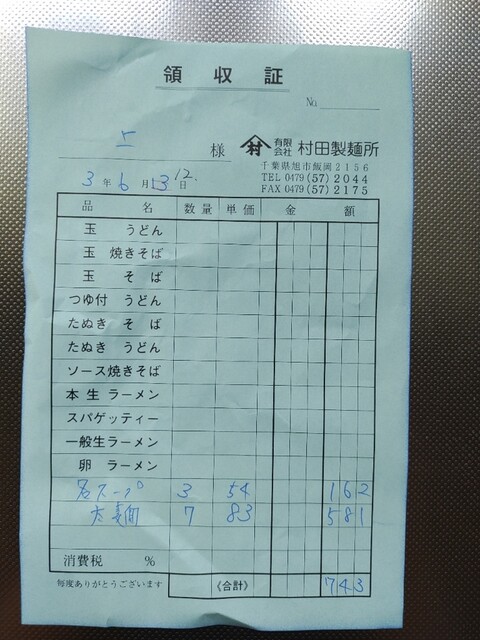 領収証
No.
上 様
有限会社 村田製麺所
千葉県旭市飯岡2156
TEL 0479 (57) 2044
FAX 0479 (57) 2175
3年6月12日
品名 数量 単価 金額
玉 うどん
玉 焼きそば
玉 そば
つゆ付 うどん
たぬき そば
たぬき うどん
ソース焼きそば
本生ラーメン
スパゲッティー
一般生ラーメン
卵 ラーメン
スープ 3 54 162
太麺 7 83 581
消費税 %
毎度ありがとうございます 《合計》 743